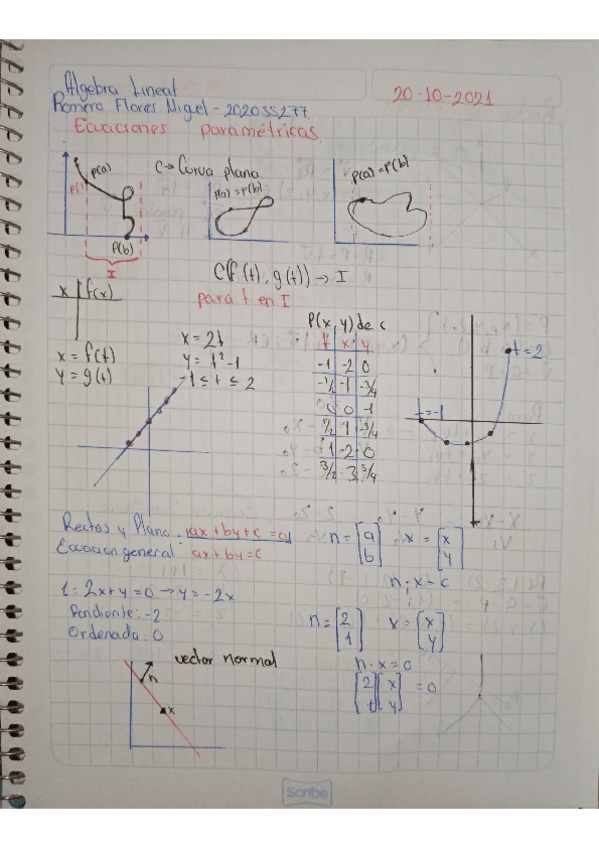 Algebra Lineal
Romero Flores Miguel - 202055277.
20-10-2021
Ecuaciones paramétricas.
C → Curva plana
P(a)
P(t)
P(b)
I
P(a) = P(b)
P(a) = P(b)
C(f(t), g(t)) → I
para t en I
x | f(x)
x = f(t)
y = g(t)
x = 2t
y = t² - 1
-1 ≤ t ≤ 2
P(x, y) de c
t | x | y
-1 | -2 | 0
-1/2 | -1 | -3/4
0 | 0 | -1
1/2 | -1 | -3/4
1 | -2 | 0
3/2 | -3 | 5/4
t = 2
t = -1
Rectas y Plano: ax + by + c = 0
Ecuacion general: ax + by = c
n = [a b] x = [x y]
n · x = c
l: 2x + y = 0 → y = -2x
Pendiente: -2
Ordenada: 0
n = [2 1] x = [x y]
vector normal
n
x
n · x = 0
[2 1] [x y] = 0
Scribe